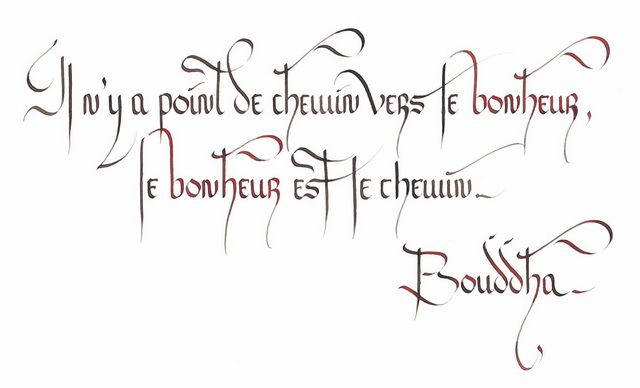 Il n'y a point de chemin vers le bonheur,
le bonheur est le chemin_
Bouddha_